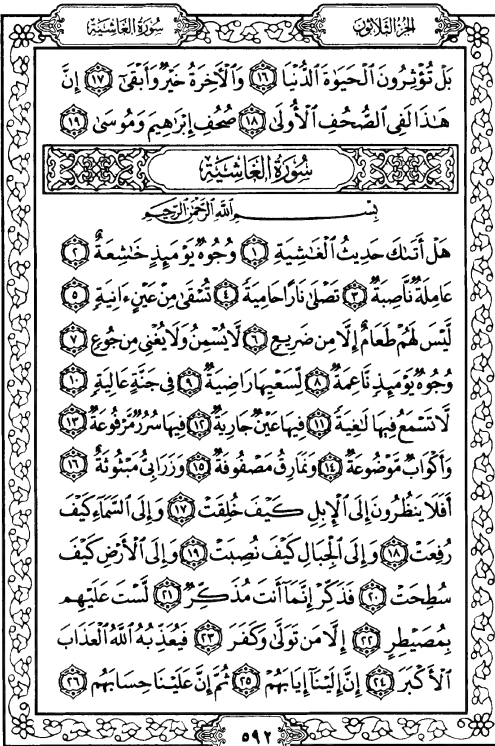 الجزء الثلاثون
سورة الغاشية
بَلْ تُؤْثِرُونَ الْحَيَوٰةَ الدُّنْيَا ١٦ وَالْأَخِرَةُ خَيْرٌ وَأَبْقَىٰ ١٧ إِنَّ
هَـٰذَا لَفِى الصُّحُفِ الْأُولَىٰ ١٨ صُحُفِ إِبْرَٰهِيمَ وَمُوسَىٰ ١٩
سُورَةُ الْغَاشِيَةِ
بِسْمِ اللَّهِ الرَّحْمَٰنِ الرَّحِيمِ
هَلْ أَتَىٰكَ حَدِيثُ الْغَـٰشِيَةِ ١ وُجُوهٌ يَوْمَئِذٍ خَـٰشِعَةٌ ٢
عَامِلَةٌ نَّاصِبَةٌ ٣ تَصْلَىٰ نَارًا حَامِيَةً ٤ تُسْقَىٰ مِنْ عَيْنٍ ءَانِيَةٍ ٥
لَّيْسَ لَهُمْ طَعَامٌ إِلَّا مِن ضَرِيعٍ ٦ لَّا يُسْمِنُ وَلَا يُغْنِى مِن جُوعٍ ٧
وُجُوهٌ يَوْمَئِذٍ نَّاعِمَةٌ ٨ لِّسَعْيِهَا رَاضِيَةٌ ٩ فِى جَنَّةٍ عَالِيَةٍ ١٠
لَّا تَسْمَعُ فِيهَا لَـٰغِيَةً ١١ فِيهَا عَيْنٌ جَارِيَةٌ ١٢ فِيهَا سُرُرٌ مَّرْفُوعَةٌ ١٣
وَأَكْوَابٌ مَّوْضُوعَةٌ ١٤ وَنَمَارِقُ مَصْفُوفَةٌ ١٥ وَزَرَابِىُّ مَبْثُوثَةٌ ١٦
أَفَلَا يَنظُرُونَ إِلَى الْإِبِلِ كَيْفَ خُلِقَتْ ١٧ وَإِلَى السَّمَاءِ كَيْفَ
رُفِعَتْ ١٨ وَإِلَى الْجِبَالِ كَيْفَ نُصِبَتْ ١٩ وَإِلَى الْأَرْضِ كَيْفَ
سُطِحَتْ ٢٠ فَذَكِّرْ إِنَّمَا أَنتَ مُذَكِّرٌ ٢١ لَّسْتَ عَلَيْهِم
بِمُصَيْطِرٍ ٢٢ إِلَّا مَن تَوَلَّىٰ وَكَفَرَ ٢٣ فَيُعَذِّبُهُ اللَّهُ الْعَذَابَ
الْأَكْبَرَ ٢٤ إِنَّ إِلَيْنَا إِيَابَهُمْ ٢٥ ثُمَّ إِنَّ عَلَيْنَا حِسَابَهُم ٢٦
٥٩٢